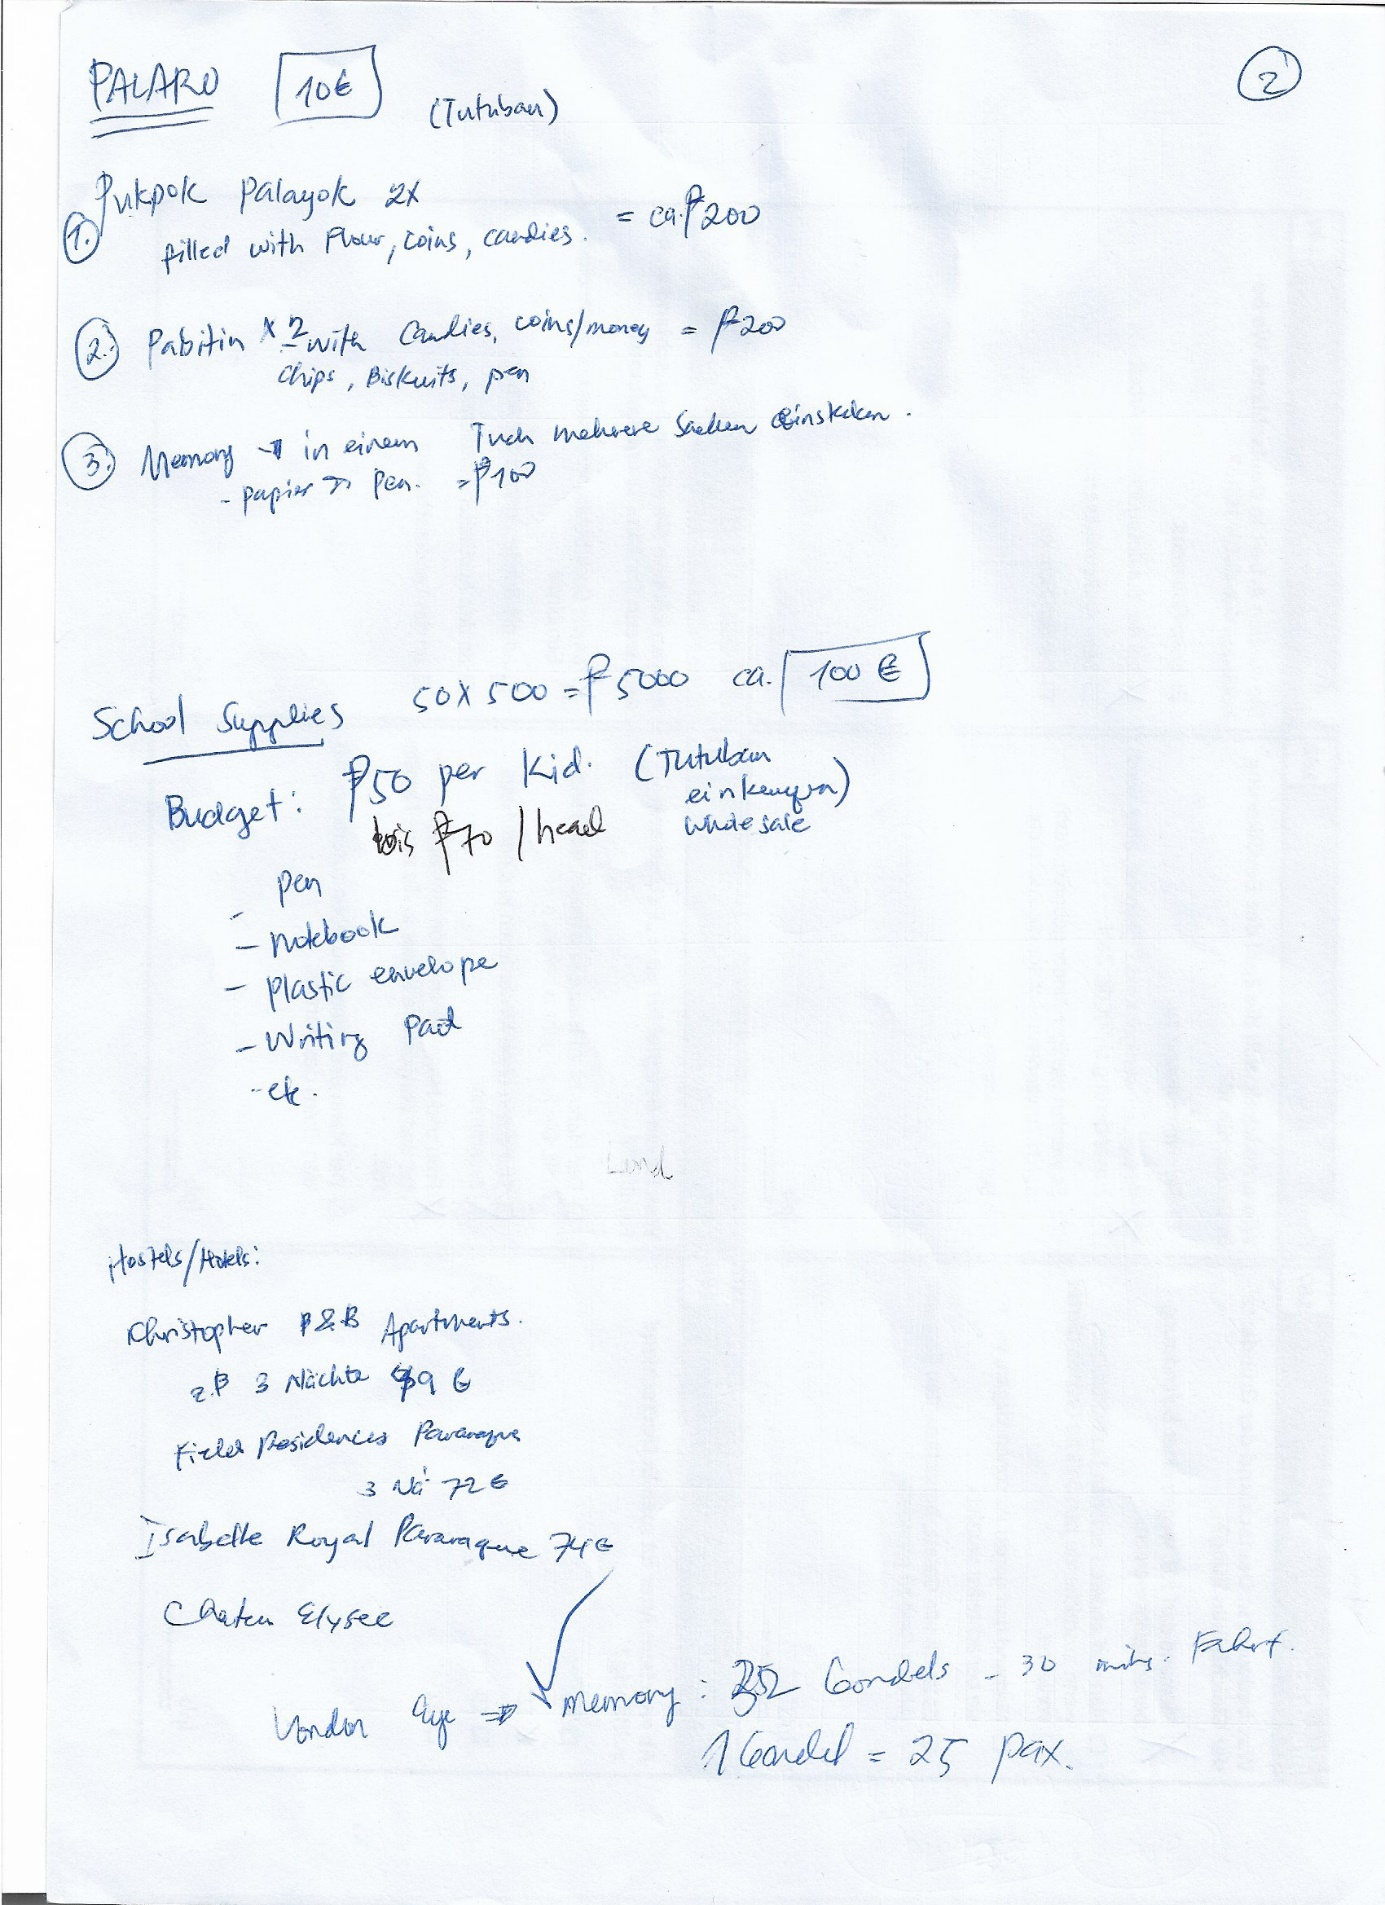 PALARO 10€ (Tutuban) 2
1. Pukpok Palayok 2x
filled with Flour, coins, candies. = ca. ₱200
2. Pabitin x 2 with Candies, coins/money = ₱200
chips, Biskuits, pen
3. Memory → in einem Tuch mehrere Sachen
- papier → Pen. = ₱100
School Supplies 50 x 500 = ₱5000 ca. 100 €
Budget: ₱50 per Kid. (Tutuban
einkaufen)
bis ₱70 / head wholesale
- pen
- Notebook
- Plastic envelope
- Writing Pad
- etc.
Land
Hostels/Hotels:
Christopher B&B Apartments.
z.B 3 Nächte 9 €
Field Residences Paranaque
3 Nä 72 €
Isabelle Royal Paranaque 74 €
Chateu Elysee
London Eye → Memory: 32 Gondels - 30 mins. Fahrt.
1 Gondel = 25 pax.